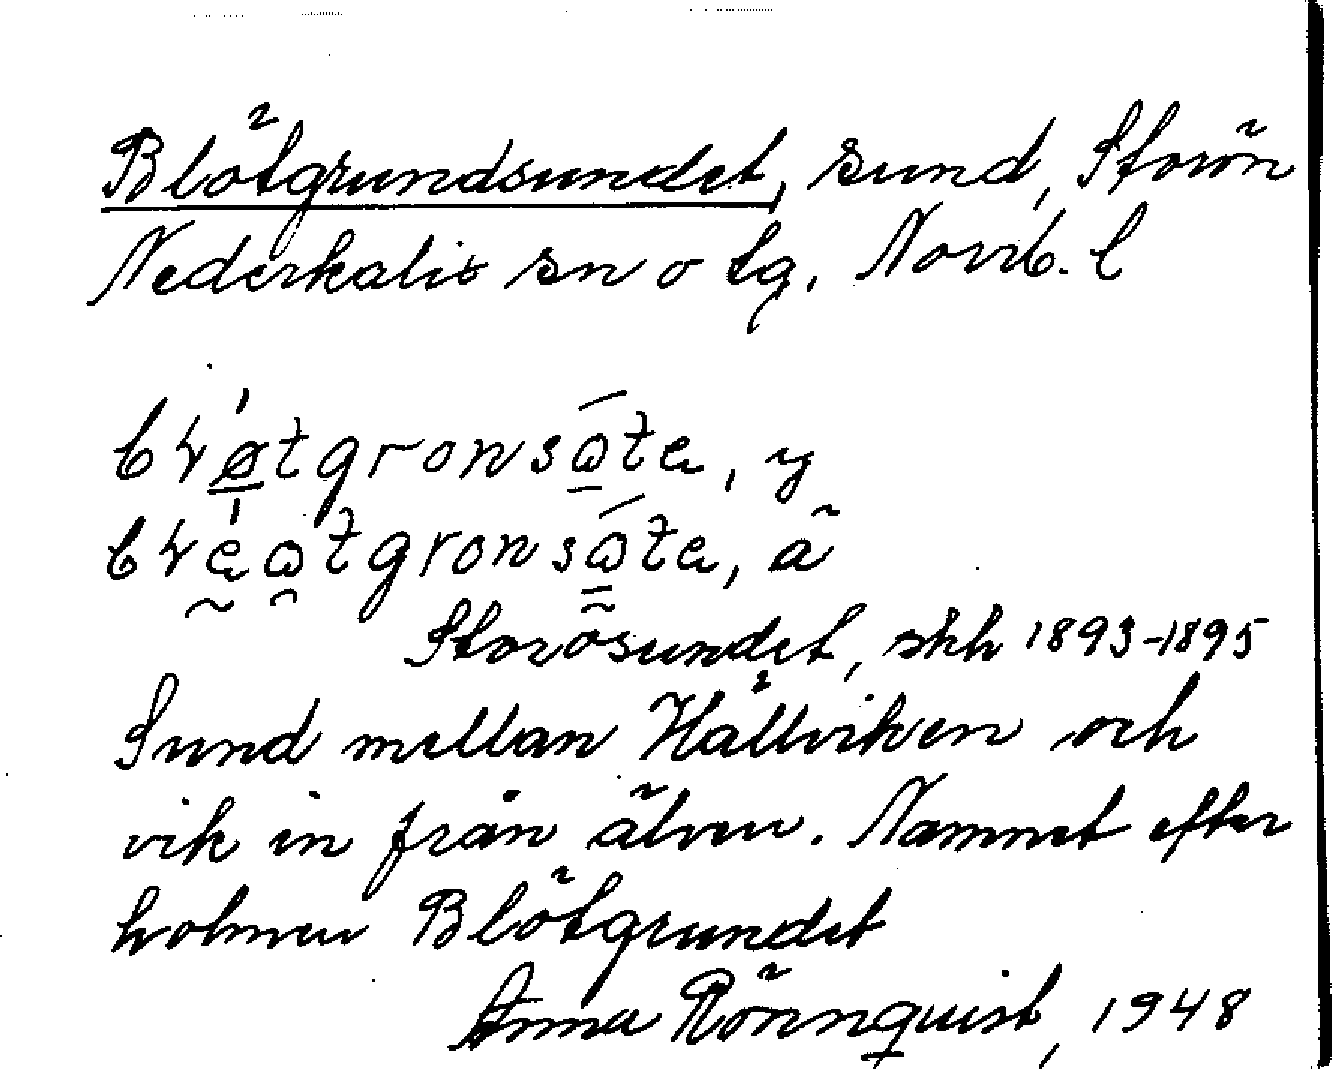 Blötgrundsundet, sund, Storön
Nederkalix sn o tg. Norrb. l
, y
, ä
Storösundet, skh 1893-1895
Sund mellan Hällviken och
vik in från älven. Namnet efter
holmen Blötgrundet
Anna Rönnquist, 1948